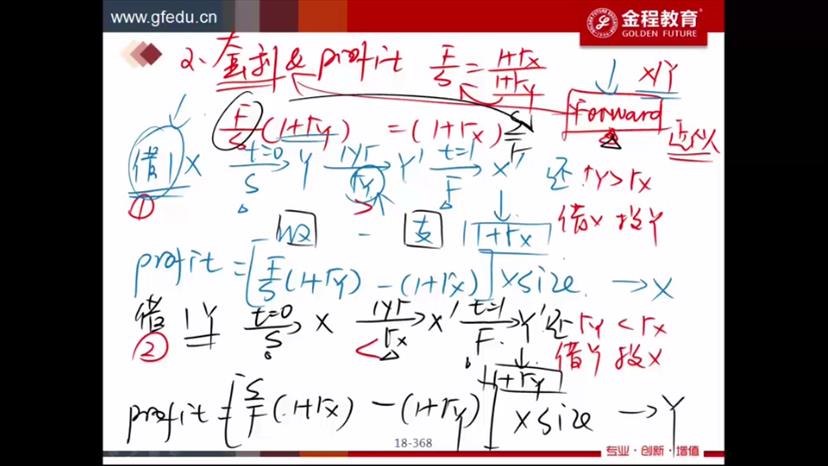 www.gfedu.cn
金程教育
GOLDEN FUTURE
2、套利 & profit F/S = 1+rx/1+ry X/Y
Forward
F/S (1+ry) = (1+rx) S/F
借1X t=0 S Y 1yr ry Y' t=1 F X' 还 ry>rx
① > 借X 投Y
收 - 支 1+rx
profit = [F/S (1+ry) - (1+rx)] X size → X
借 1Y t=0 S X 1yr rx X' t=1 F Y' 还 ry < rx
② < 借Y 投X
1+ry
profit = [S/F (1+rx) - (1+ry)] X size → Y
18-368
专业·创新·增值